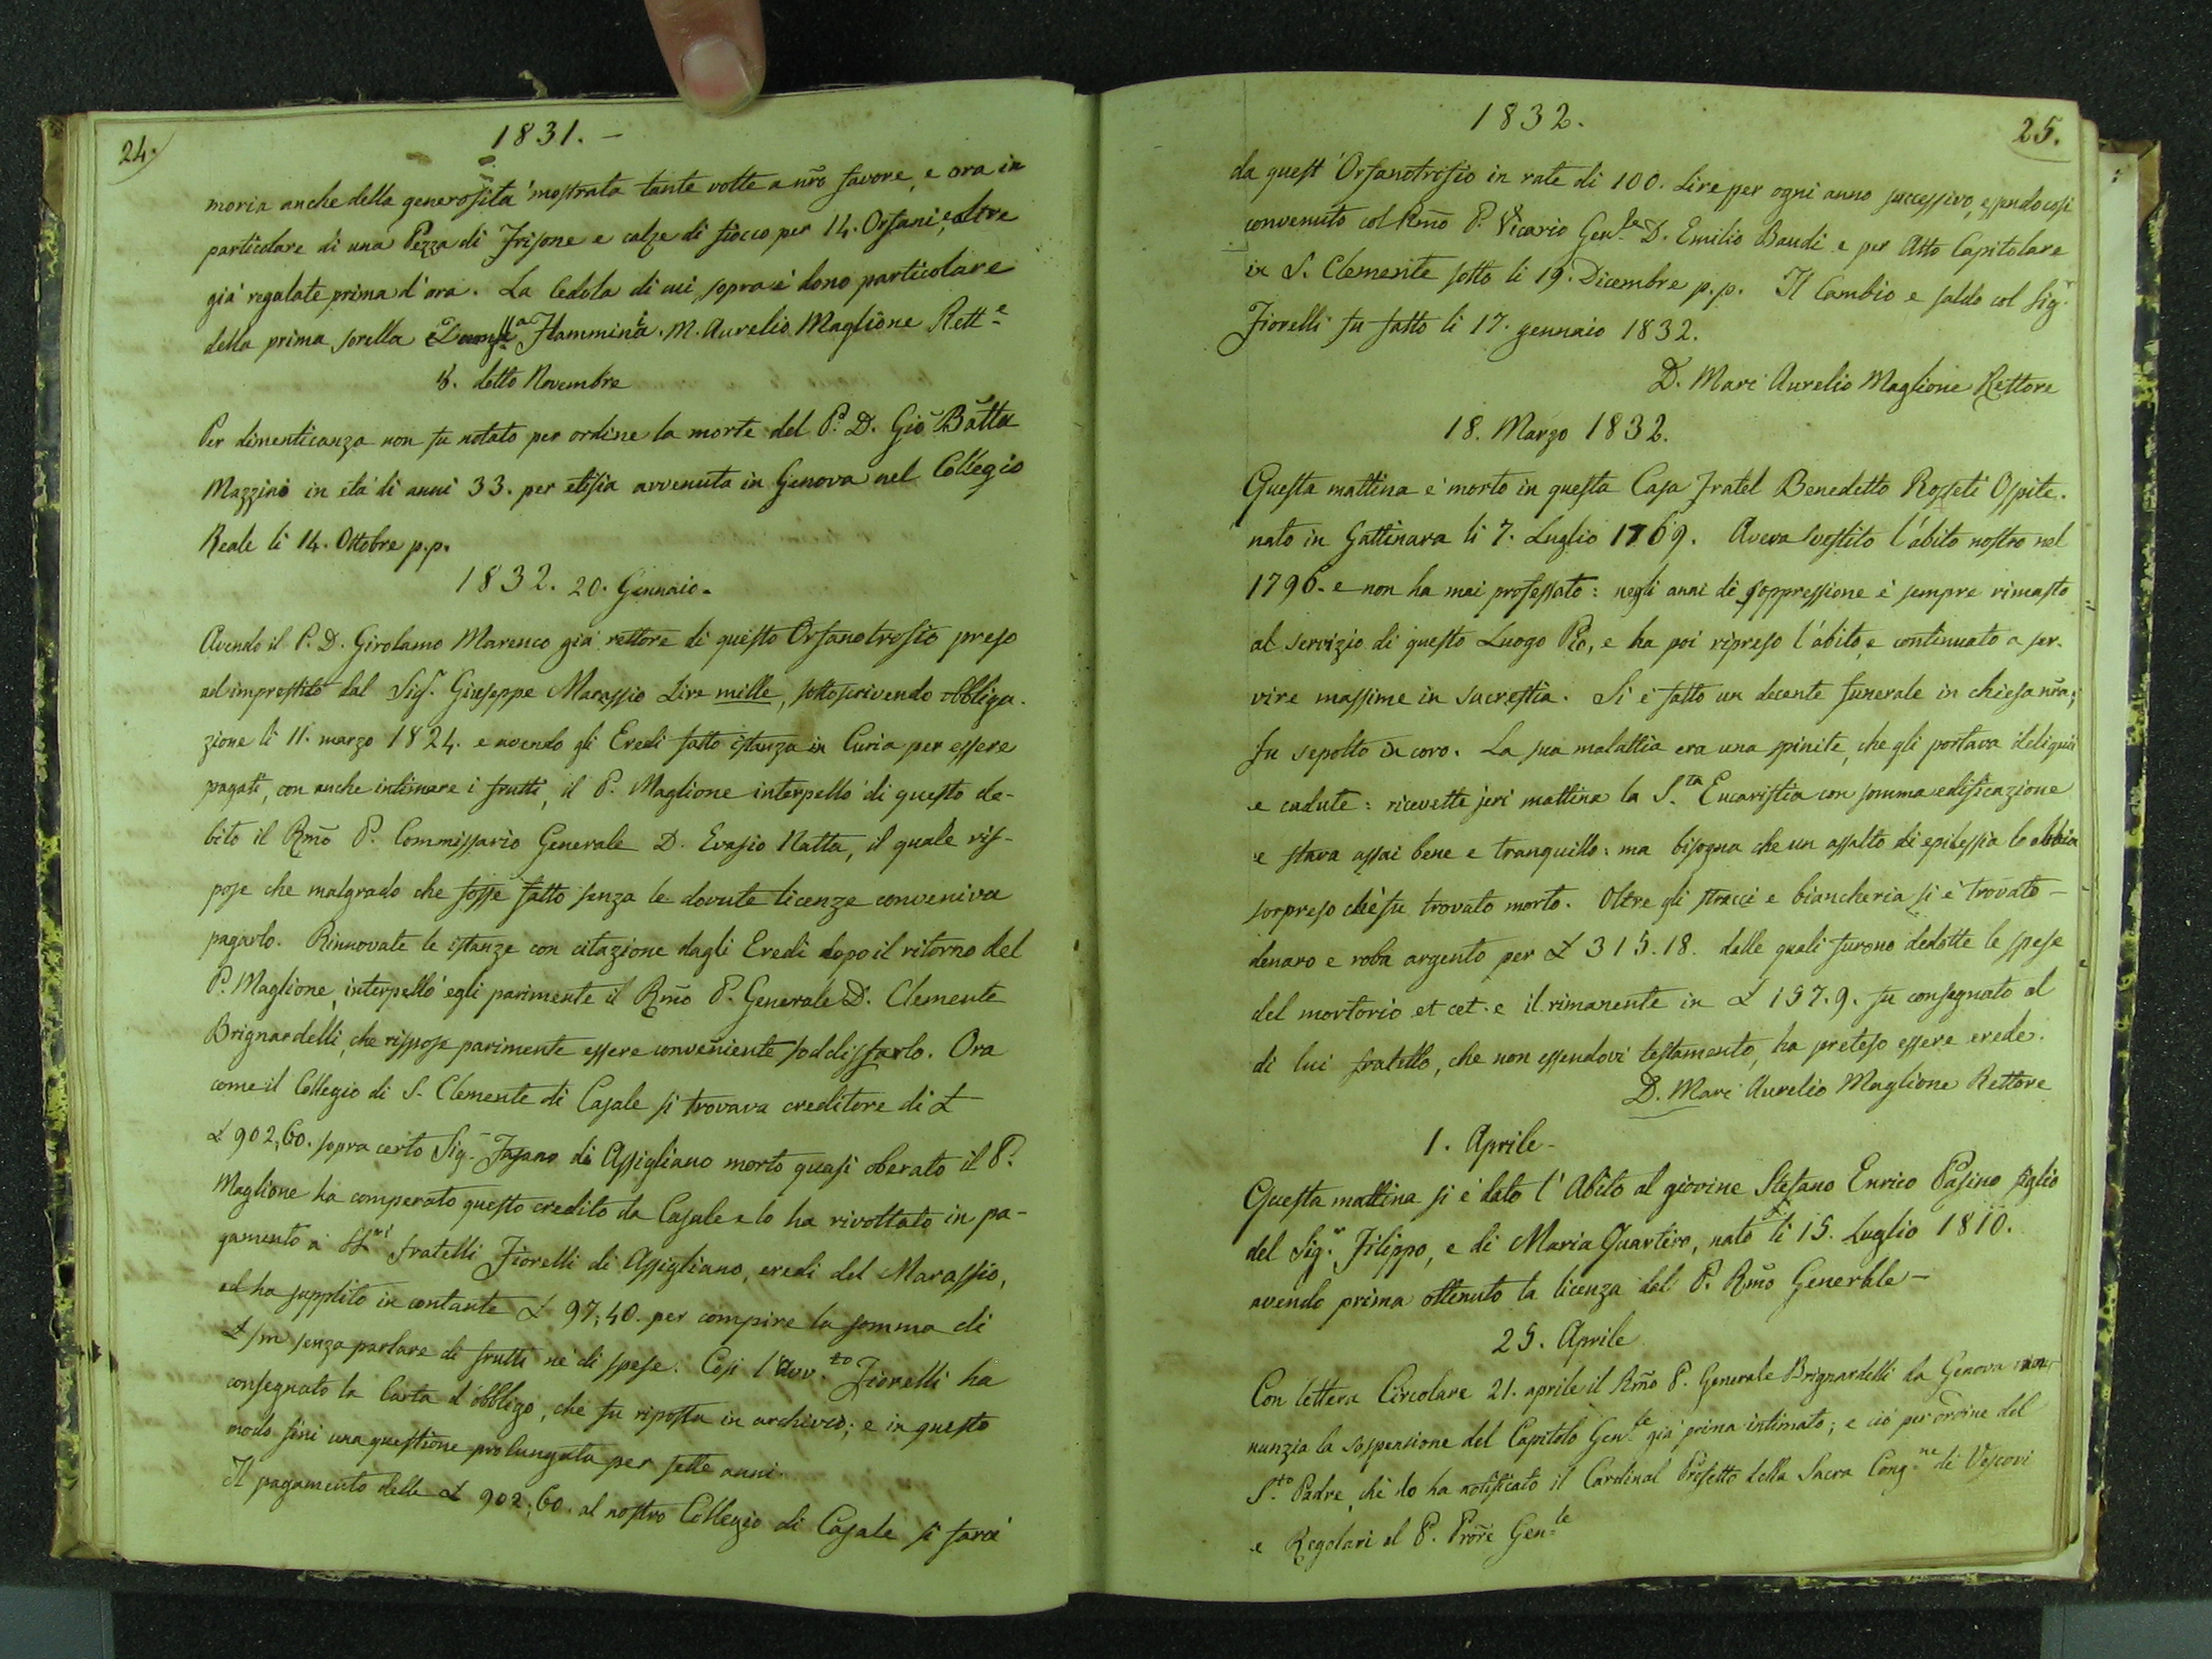 24.
1831. –
moria anche della generosità mostrata tante volte a nr̃o favore, e ora in
particolare di una Pezza di Frisone e calze di fiocco per 14. Orfani, e oltre
già regalate prima d'ora. La Cedola di cui sopra è dono particolare
della prima sorella Flamminia. M. Aurelio Maglione Rett.e
8. detto Novembre
Per dimenticanza non fu notato per ordine la morte del P. D. Gio Batta
Mazzini in età di anni 33. per etisia avvenuta in Genova nel Collegio
Reale li 14. Ottobre p.p.
1832. 20. Gennaio.
Avendo il P. D. Girolamo Marenco già rettore di questo Orfanotrofio preso
ad imprestito dal Sig.r Giuseppe Marassio Lire mille, sottoscrivendo obbliga-
zione li 11. marzo 1824. e avendo gli Eredi fatto istanza in Curia per essere
pagati, con anche intimare i frutti, il P. Maglione interpellò di questo de-
bito il Rmo P. Commissario Generale D. Evasio Natta, il quale ris-
pose che malgrado che fosse fatto senza le dovute licenze conveniva
pagarlo. Rinnovate le istanze con citazione dagli Eredi dopo il ritorno del
P. Maglione, interpellò egli parimente il Rmo P. Generale D. Clemente
Brignardelli, che rispose parimente essere conveniente soddisfarlo. Ora
come il Collegio di S. Clemente di Casale si trovava creditore di £
£ 902,60. sopra certo Sig.r Fasano di Assigliano morto quasi oberato il P.
Maglione ha comperato questo credito da Casale e lo ha rivoltato in pa-
gamento a' SS.ri fratelli Fiorelli di Assigliano, eredi del Marassio,
ed ha supplito in contante £ 97,40. per compire la somma di
£ /m senza parlare di frutti nè di spese. Così l'Avv.to Fiorelli ha
consegnato la Carta d'obbligo, che fu riposta in archivio; e in questo
modo finì una questione prolungata per sette anni.
Il pagamento delle £ 902,60. al nostro Collegio di Casale si farà
1832.
25.
da quest'Orfanotrofio in rate di 100. Lire per ogni anno successivo, essendo così
convenuto col Rmo P. Vicario Gen.le D. Emilio Baudi e per Atto Capitolare
in S. Clemente sotto li 19. Dicembre p.p. Il Cambio e saldo col Sig.r
Fiorelli fu fatto li 17. gennaio 1832.
D. Marc Aurelio Maglione Rettore
18. Marzo 1832.
Questa mattina è morto in questa Casa Fratel Benedetto Rosseti Ospite.
nato in Gattinara li 7. Luglio 1769. Aveva vestito l'abito nostro nel
1796. e non ha mai professato: negli anni di soppressione è sempre rimasto
al servizio di questo Luogo Pio, e ha poi ripreso l'abito, e continuato a ser-
vire massime in sacrestia. Si è fatto un decente funerale in chiesa nrã;
fu sepolto in coro. La sua malattia era una spinite, che gli portava deliquii
e cadute: ricevette jeri mattina la S.ta Eucaristia con somma edificazione
e stava assai bene e tranquillo: ma bisogna che un assalto di epilessia lo abbia
sorpreso chè fu trovato morto. Oltre gli stracci e biancheria si è trovato –
denaro e roba argento per £ 315.18. dalle quali furono dedotte le spese
del mortorio et cet. e il rimanente in £ 157.9. fu consegnato al
di lui fratello, che non essendovi testamento, ha preteso essere erede.
D. Marc Aurelio Maglione Rettore
1. Aprile –
Questa mattina si è dato l'Abito al giovine Stefano Enrico Pasino figlio
del Sig.r Filippo, e di Maria Quartiro, nato li 15. Luglio 1810.
avendo prima ottenuto la licenza dal P. Rmo Generale –
25. Aprile
Con lettera Circolare 21. aprile il Rmo P. Generale Brignardelli da Genova
nunzia la sospensione del Capitolo Gen.le già prima intimato; e ciò per ordine del
S.to Padre, chè lo ha notificato il Cardinal Prefetto della Sacra Cong.ne di Vescovi
e Regolari al P. Prore Gen.le